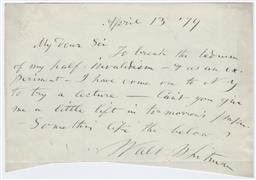 April 13 '79
My Dear Sir
To break the tedium
of my half-invalidism - & as an ex-
periment - I have come on to N Y
to try a lecture - Can't you give
me a little lift in to-morrow's paper
- Something like the below?
Walt Whitman